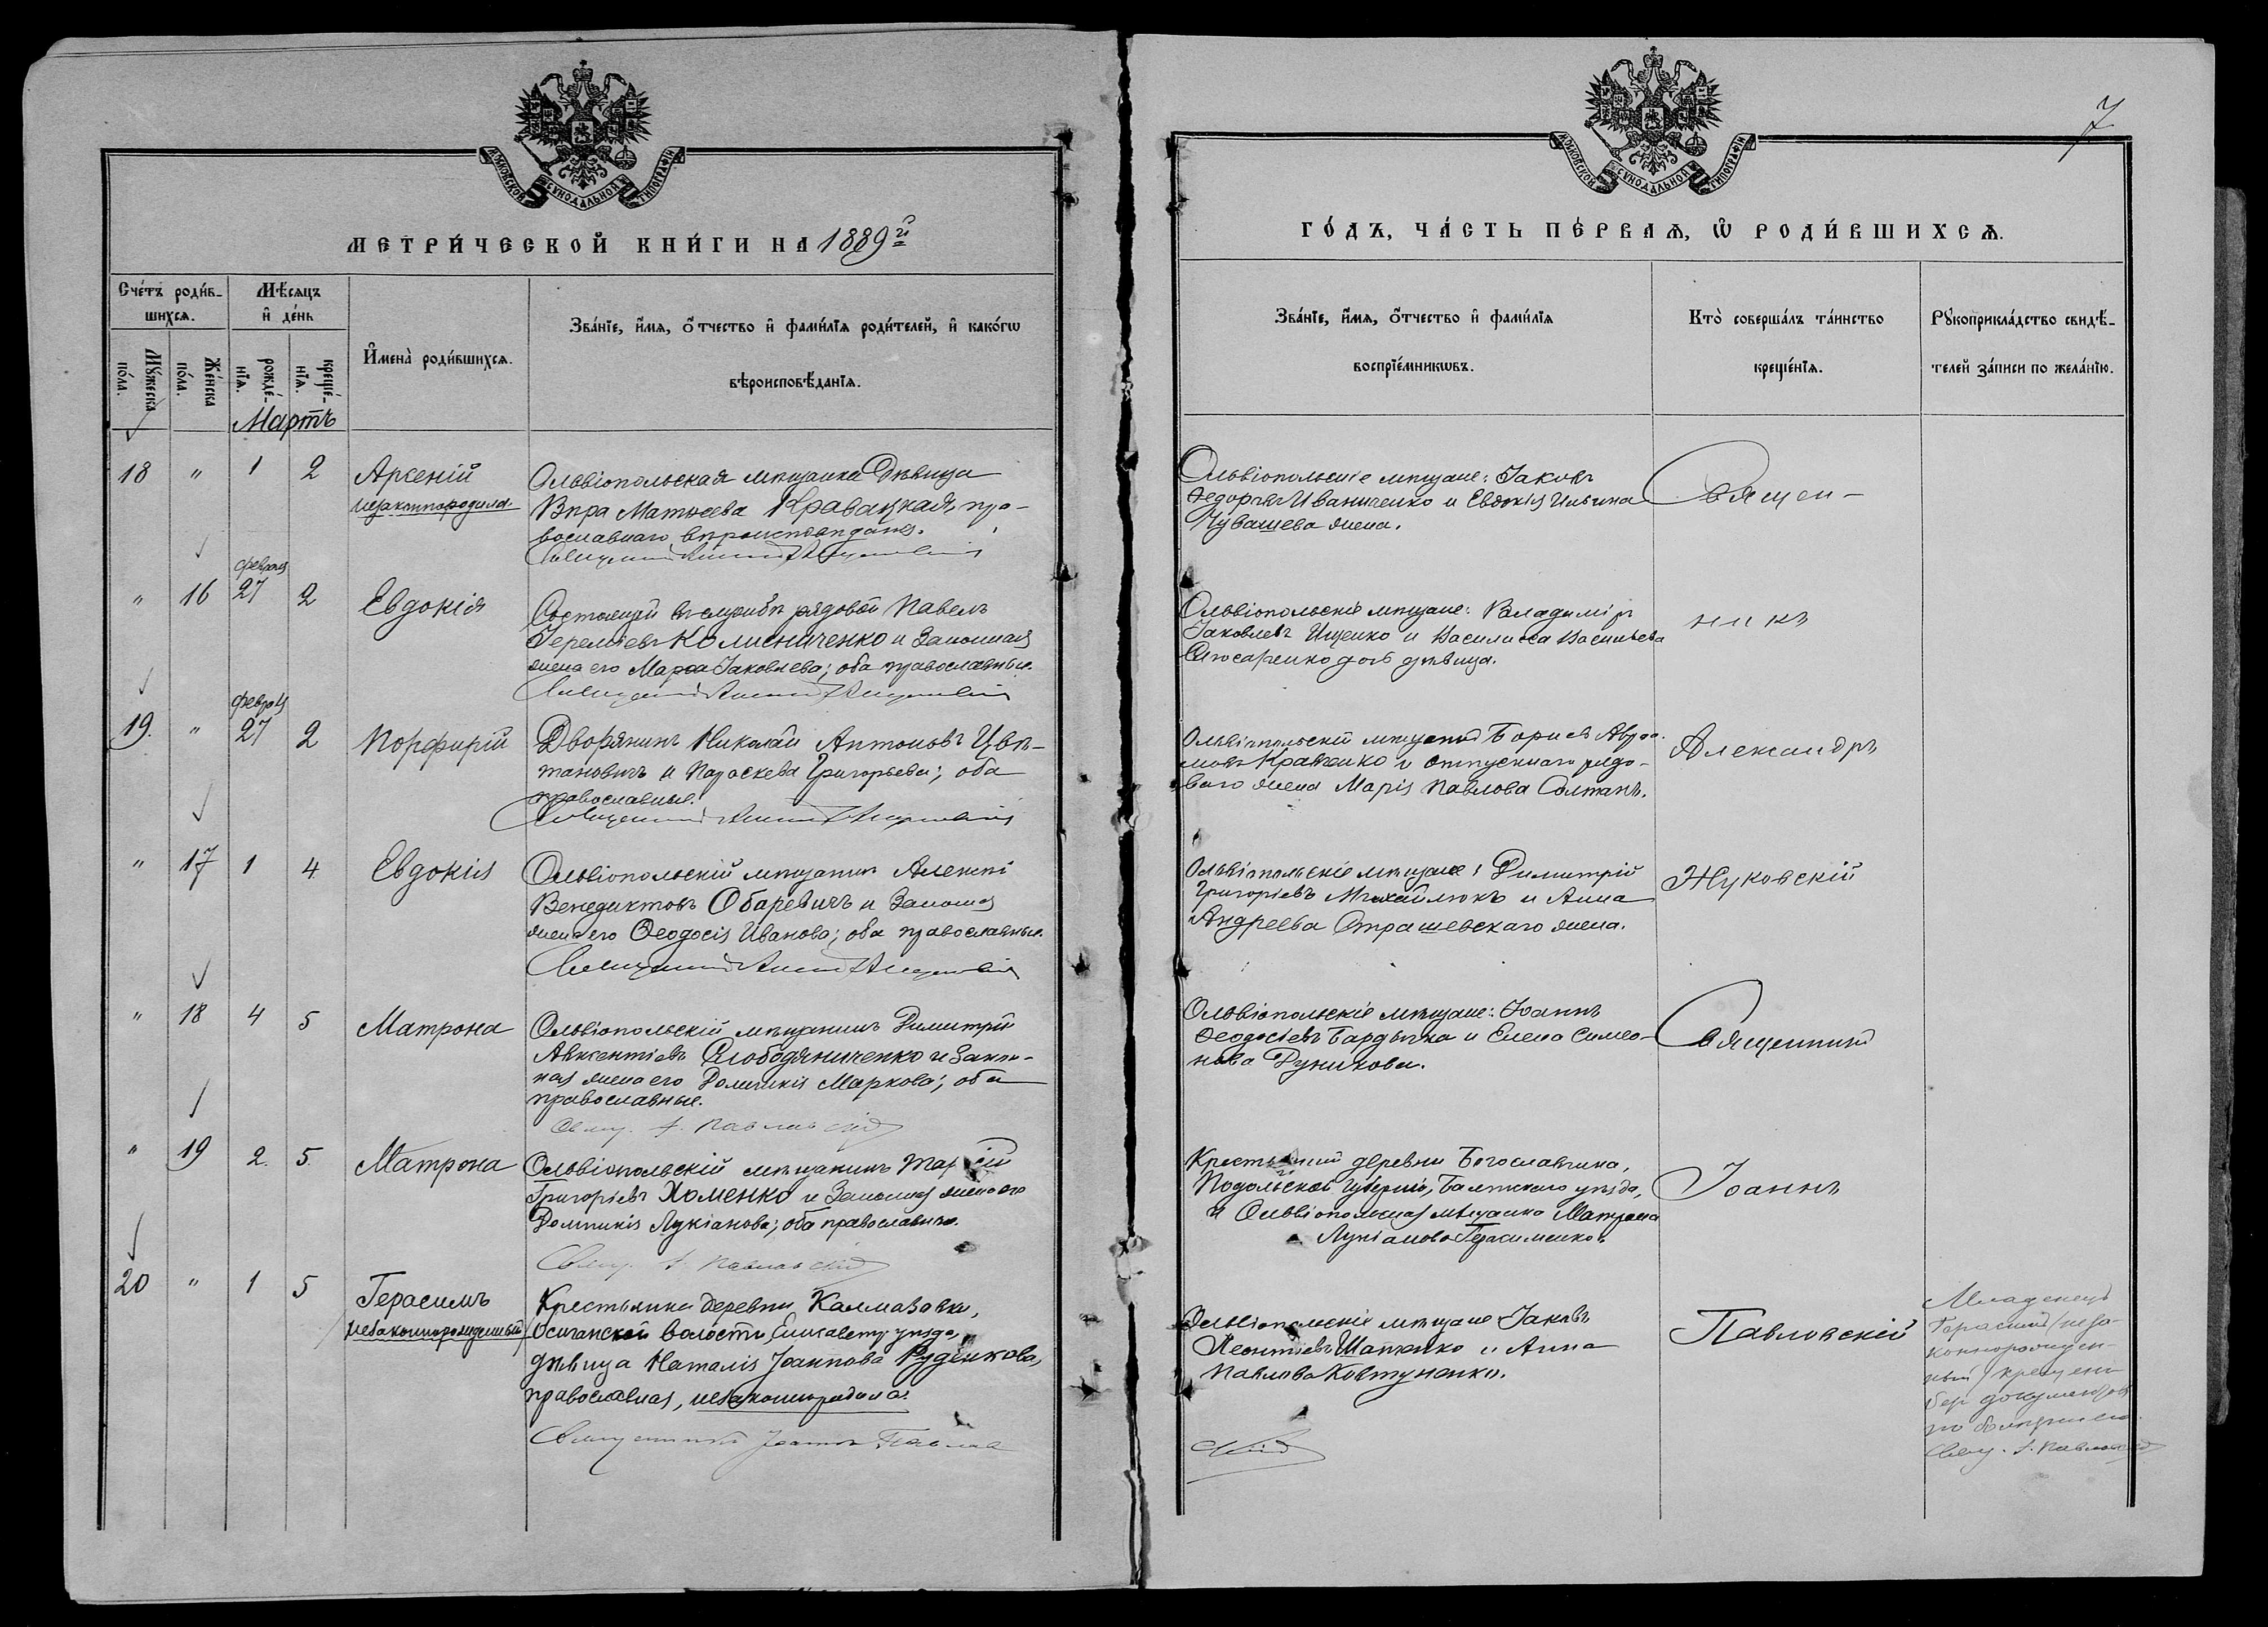 МОСКОВСКОЙ СѴНОДАЛЬНОЙ ТИПОГРАФІИ
МЕТРИ́ЧЕСКОЙ КНИ́ГИ НА 1889й
Сче́тъ роди́в-
шихсѧ.
Мꙋ́жеска по́ла.
Же́нска по́ла.
Мѣ́сѧцъ
и҆ де́нь
рожде́-
нїѧ.
креще́-
нїѧ.
И҆мена̀ роди́вшихсѧ.
Зва́нїе, и҆́мѧ, ѻ҆́тчество и҆ фами́лїѧ роди́телей, и҆ како́гѡ
вѣроисповѣ́данїѧ.
Мартъ
18 " 1 2 Арсеній
незаконнорожд
Ольвіопольская мѣщанка дѣвица
Вѣра Матѳеева Кравацкая, пра-
вославнаго вѣроисповѣданія.
" 16 февраля 27 2 Евдокія
Состоящій въ службѣ рядовой Павелъ
Іереміевъ Колисниченко и законная
жена его Марѳа Іаковлева; оба православные.
19. " февраля 27 2 Порфирій
Дворянинъ Николай Антоновъ Цвѣ-
тановичъ и Параскева Григорьева; оба
православные.
" 17 1 4 Евдокія
Ольвіопольскій мѣщанинъ Алексѣй
Венедиктовъ Обаревичъ и законная
жена его Ѳеодосія Иванова; оба православные.
" 18 4 5 Матрона
Ольвіопольскій мѣщанинъ Димитрій
Авксентіевъ Слободяниченко и закон-
ная жена его Домникія Маркова; оба
православные.
Свящ. І. Павловскій
" 19 2. 5. Матрона
Ольвіопольскій мѣщанинъ
Григоріевъ Хоменко и законная жена его
Домникія Лукіанова; оба православные.
Свящ. І. Павловскій
20 " 1 5 Герасимъ
незаконнорожденный
Крестьянка деревни Калмазовки,
Осичанской волости, Елисавету уѣзда,
дѣвица Наталія Іоаннова Руденкова,
православная, незаконнородила.
Священникъ Іоаннъ Павлов
МОСКОВСКОЙ СѴНОДАЛЬНОЙ ТИПОГРАФІИ
7
ГО́ДЪ, ЧА́СТЬ ПЕ́РВАѦ, Ѡ҆ РОДИ́ВШИХСѦ.
Зва́нїе, и҆́мѧ, ѻ҆́тчество и҆ фами́лїѧ
воспрїе́мникѡвъ.
Кто̀ соверша́лъ та́инство
креще́нїѧ.
Рꙋкоприкла́дство свидѣ́-
телей за́писи по жела́нїю.
Ольвіопольскіе мѣщане: Іаковъ
Ѳедоровъ Иваниченко и Евдокія Ильина
Чувашева жена.
Священ-
Ольвіопольскіе мѣщане: Владиміръ
Іаковлевъ Ищенко и Василиса Васильева
Слюсаренко дочь дѣвица.
никъ
Ольвіопольскій мѣщанинъ Борисъ Авра-
мовъ Кравченко и отпускнаго рядо-
ваго жена Марія Павлова Солтанъ.
Александръ
Ольвіопольскіе мѣщане: Димитрій
Григоріевъ Михайлюкъ и Анна
Андреева Страшевскаго жена.
Жуковскій
Ольвіопольскіе мѣщане: Іоаннъ
Ѳеодосіевъ Бардычка и Елена Симео-
нова Руникова.
Священникъ
Крестьянинъ деревни Богославчика,
Подольской губерніи, Балтскаго уѣзда,
и Ольвіопольская мѣщанка Матрона
Лукіанова Герасименкова.
Іоаннъ
Ольвіопольскіе мѣщане Іаковъ
Леонтіевъ Шапченко и Анна
Павлова Ковтуненко.
Павловскій
скій
Младенецъ
Герасимъ (неза-
коннорожден-
ный) крещенъ
безъ документовъ
Свящ. І. Павловскій